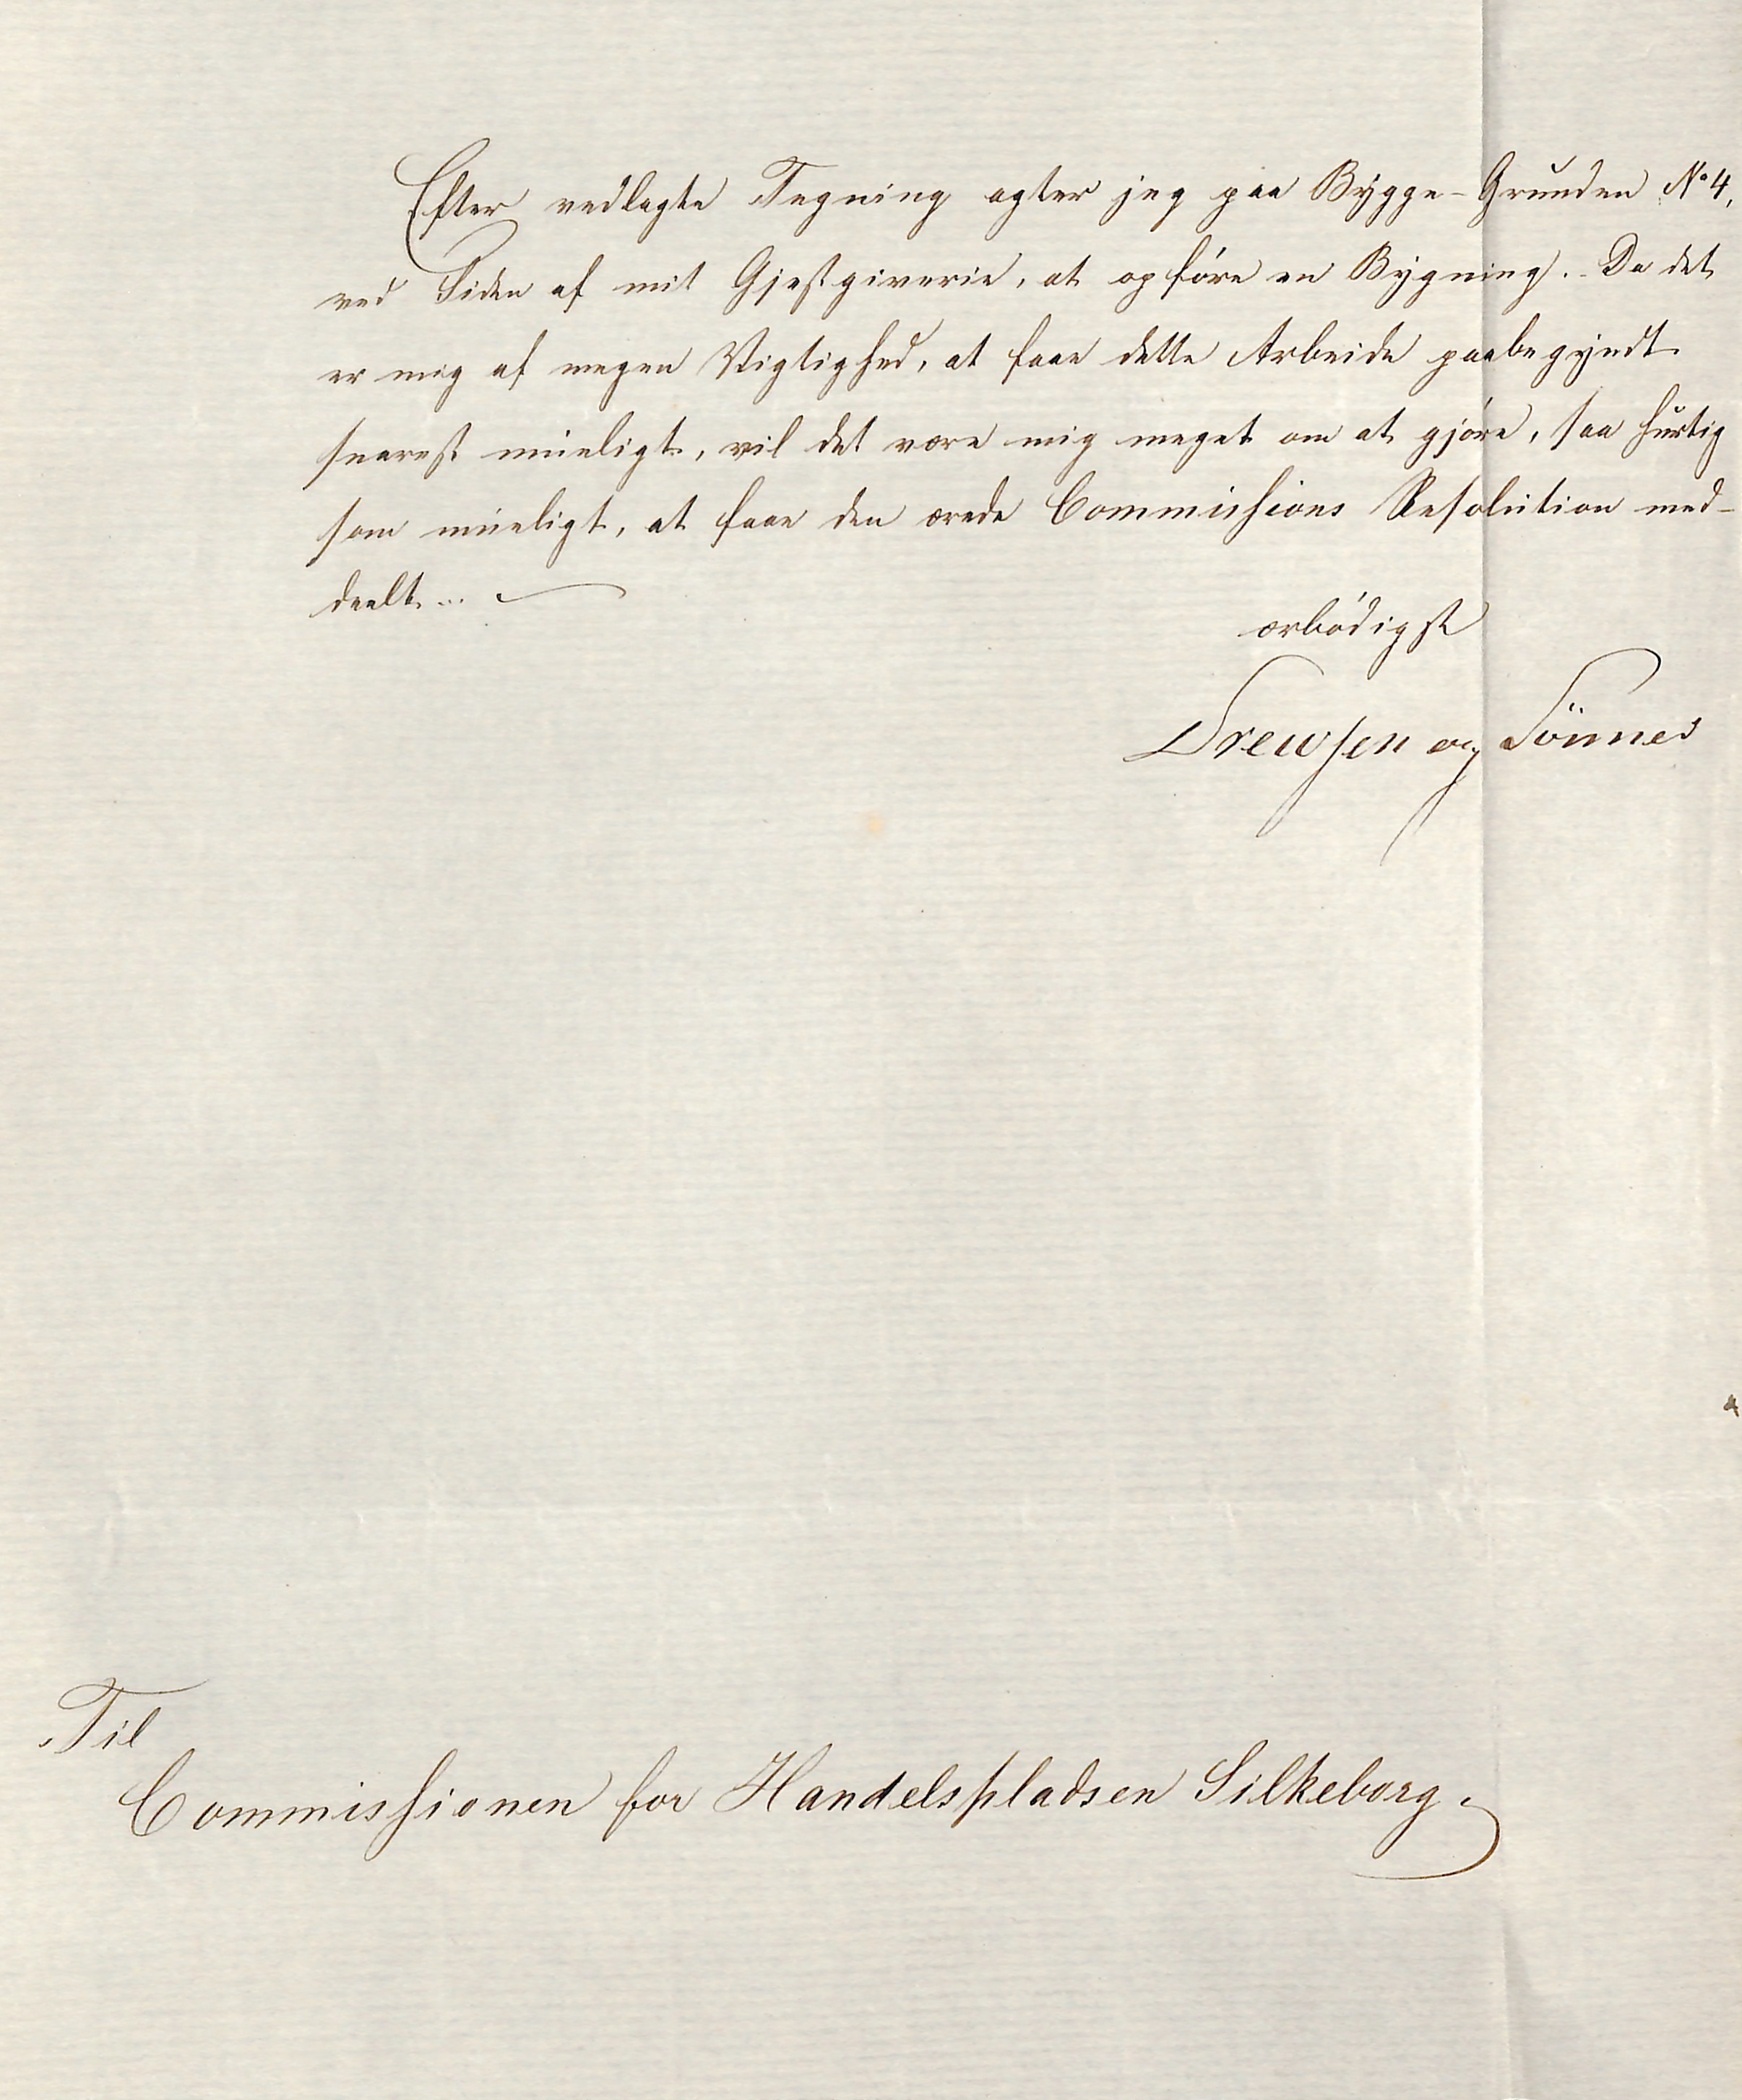 Efter vedlagte Tegning agter jeg paa Bygge-Grunden No 4,
ved Siden af mit Gjestgiverie, at opføre en Bygning. - Da det
er mig af megen Vigtighed, at faae dette Arbeide paabegyndt
snarest mueligt, vil det være mig meget om at gjøre, saa hurtig
som mueligt, at faae den ærede Commissions Resolution med-
deelt. -
ærbødigst
Drewsen og Sönner
Til
Commissionen for Handelspladsen Silkeborg.